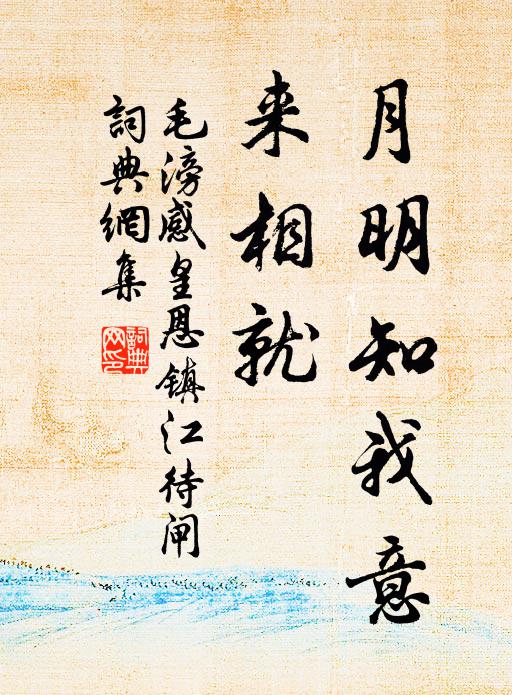 月明知我意
来相就
毛滂感皇恩镇江待闸
詞典網集
詞典網印